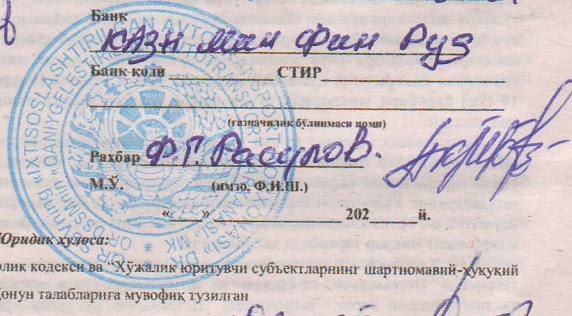 Банк
КАЗН МИН ФИН РУз
Банк коди СТИР
(ғазначилик бўлинмаси номи)
Раҳбар Ф.Г. Расулов.
М.Ў. (имзо, Ф.И.Ш.)
«____» ____________ 202____й.
Юридик хулоса:
рлик кодекси ва “Хўжалик юритувчи субъектларнинг шартномавий-ҳуқуқий
Қонун талабларига мувофиқ тузилган
IXTISOSLASHTIRILGAN AVTO